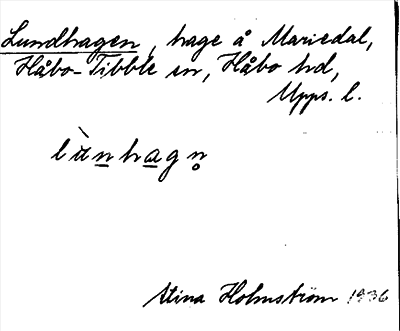 Lundhagen, hage å Mariedal,
Håbo-Tibble sn, Håbo hd,
Upps. l.
lùnhagn̥
Stina Holmström 1936